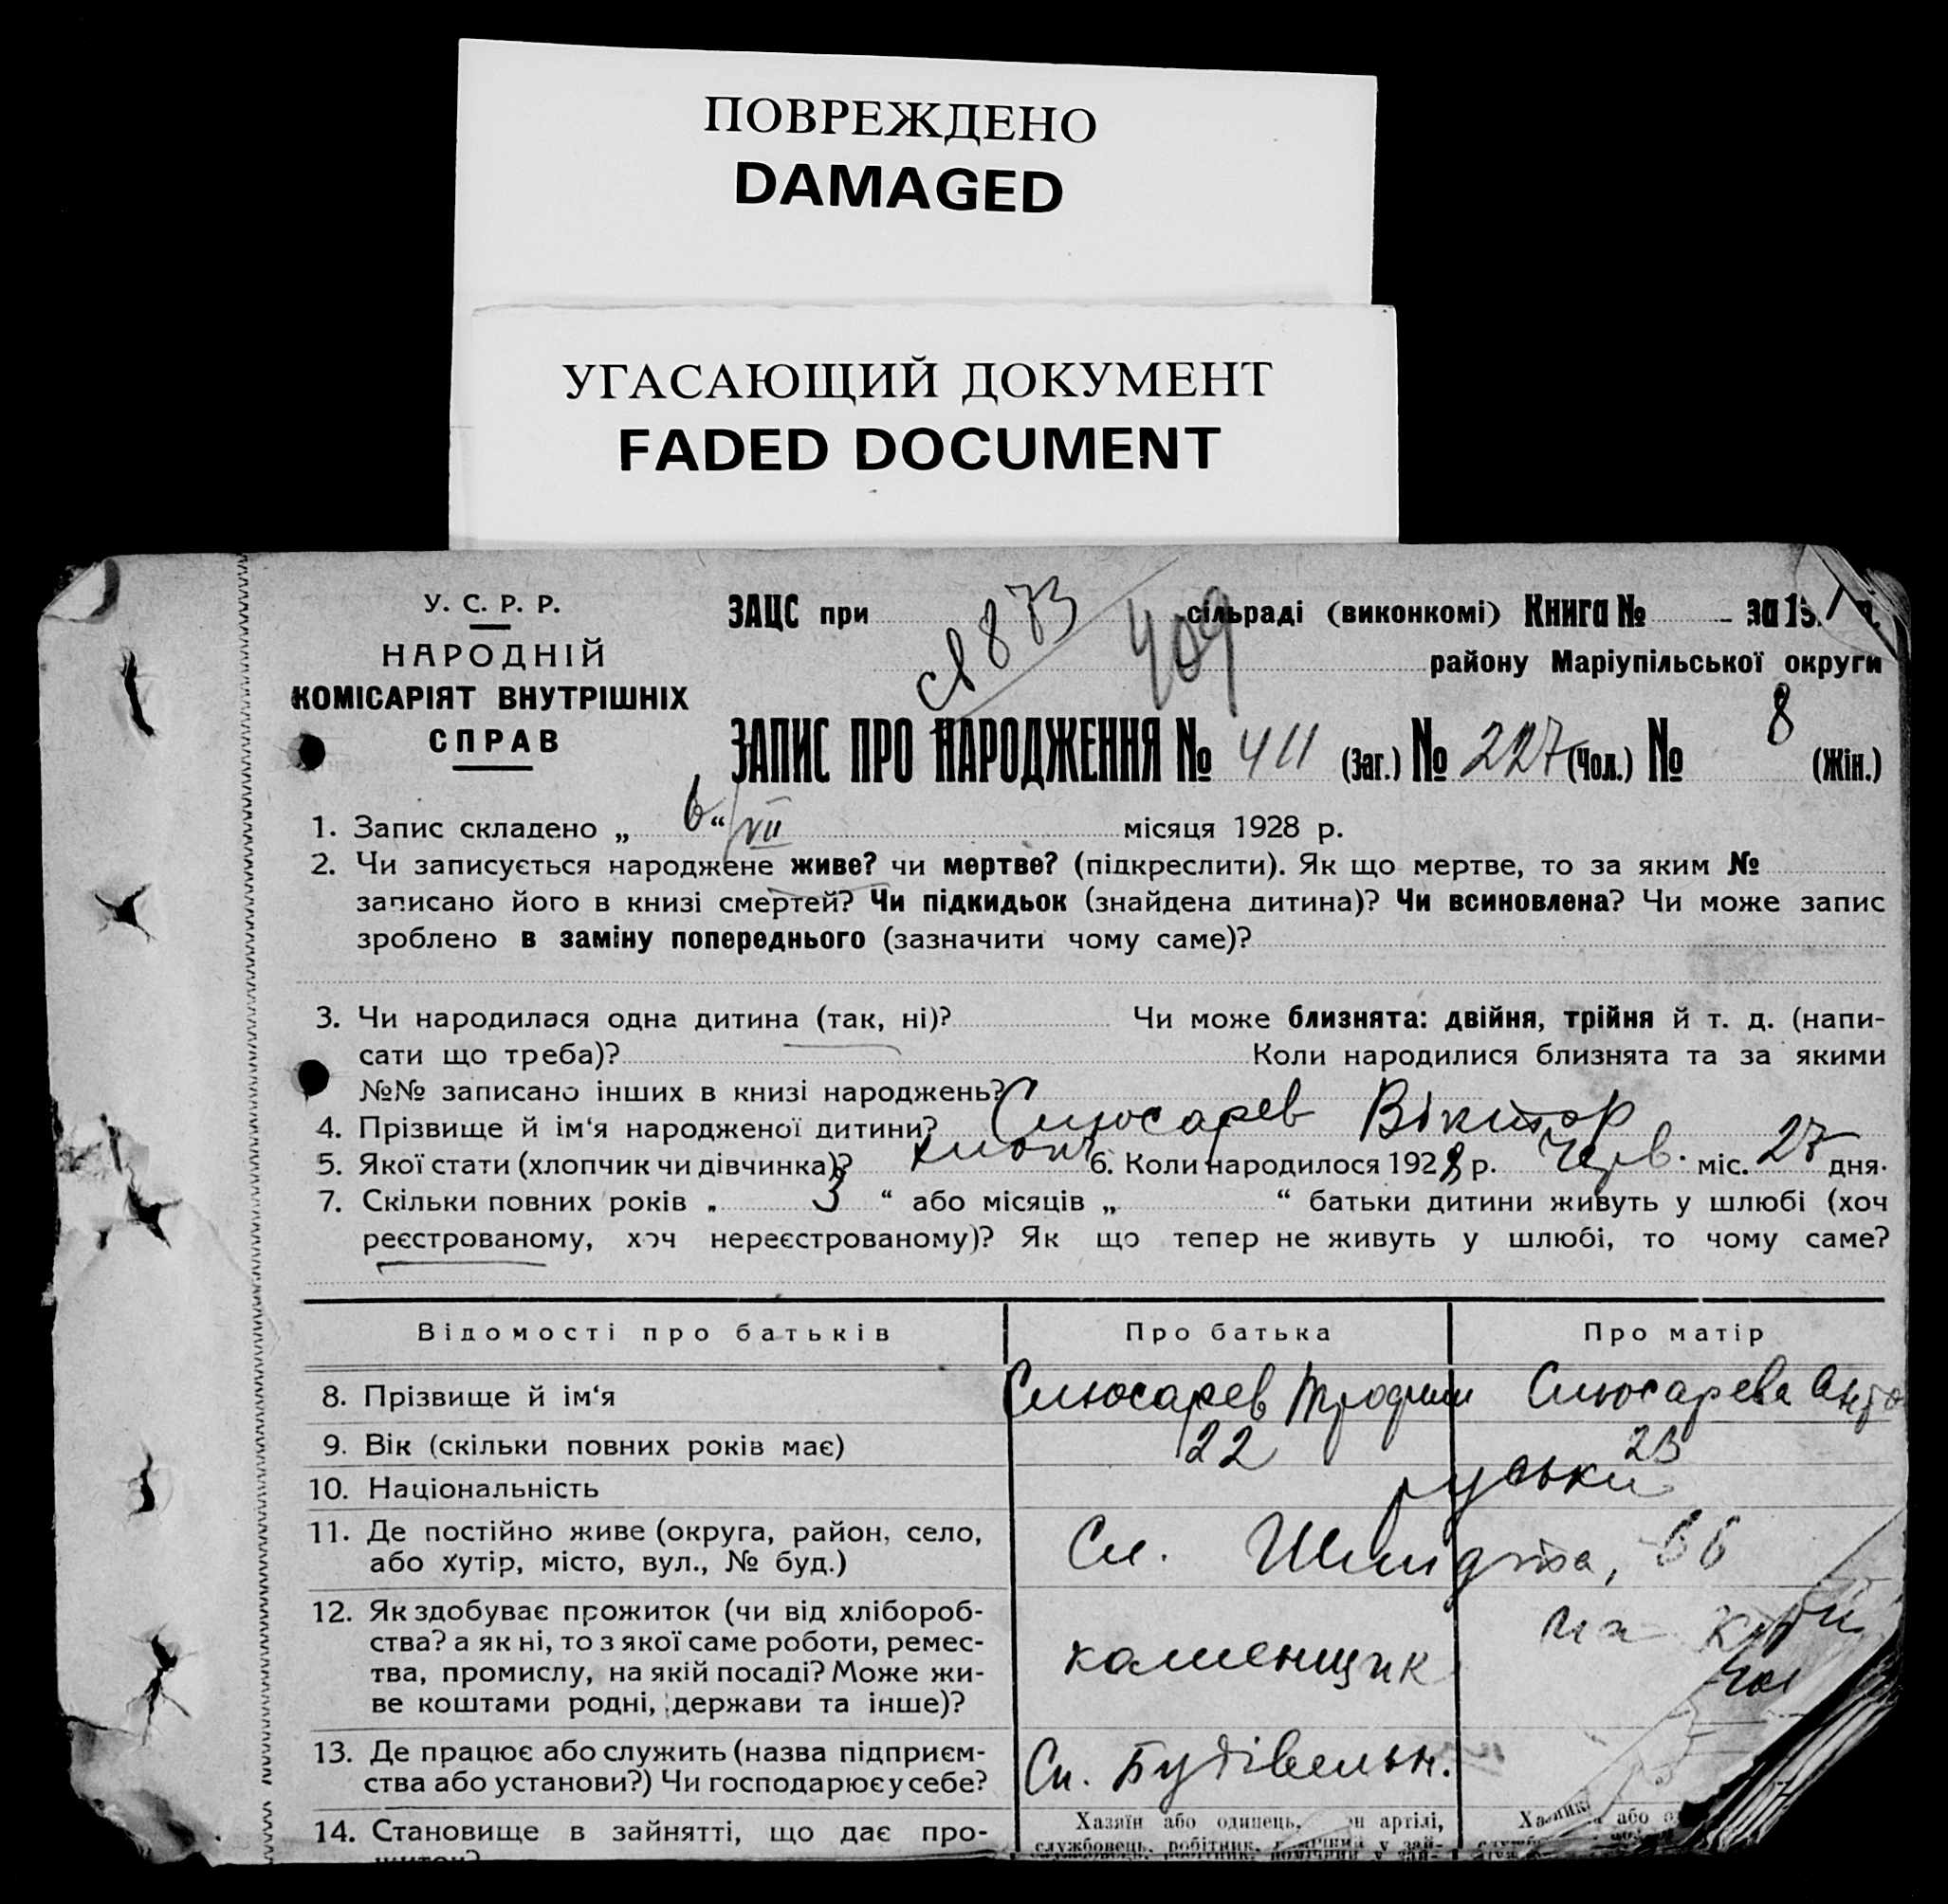 ПОВРЕЖДЕНО
DAMAGED
УГАСАЮЩИЙ ДОКУМЕНТ
FADED DOCUMENT
У. С. Р. Р.
НАРОДНІЙ
КОМІСАРІЯТ ВНУТРІШНІХ
СПРАВ
ЗАЦС при сільраді (виконкомі) Книга № за 19
873
409
району Маріупільської округи
ЗАПИС ПРО НАРОДЖЕННЯ № 411 (Заг.) № 227 (Чол.) № 8 (Жін.)
1. Запис складено „ 6 “ VII місяця 1928 р.
2. Чи записується народжене живе? чи мертве? (підкреслити). Як що мертве, то за яким №
записано його в книзі смертей? Чи підкидьок (знайдена дитина)? Чи всиновлена? Чи може запис
зроблено в заміну попереднього (зазначити чому саме)?
3. Чи народилася одна дитина (так, ні)? Чи може близнята: двійня, трійня й т. д. (напи-
сати що треба)? Коли народилися близнята та за якими
№№ записано інших в книзі народжень?
4. Прізвище й ім‘я народженої дитини? Слюсарев Віктор
5. Якої стати (хлопчик чи дівчинка)? хлопч 6. Коли народилося 1928 р. Черв. міс. 27 дня.
7. Скільки повних років „ 3 “ або місяців „ “ батьки дитини живуть у шлюбі (хоч
реєстрованому, хоч нереєстрованому)? Як що тепер не живуть у шлюбі, то чому саме?
Відомості про батьків Про батька Про матір
8. Прізвище й ім‘я Слюсарев Трофим Слюсарева
9. Вік (скільки повних років має) 22 23
10. Національність руськи
11. Де постійно живе (округа, район, село,
або хутір, місто, вул., № буд.) Сл. Шмидта, 66
12. Як здобуває прожиток (чи від хлібороб-
ства? а як ні, то з якої саме роботи, ремес-
тва, промислу, на якій посаді? Може жи-
ве коштами родні, держави та інше)? каменщик на
13. Де працює або служить (назва підприєм-
ства або установи?) Чи господарює у себе? Сп. Будівельн.
14. Становище в зайнятті, що дає про-
Хазяїн або одинець, артілі,
службовець, робітник, помічний у зай-
або